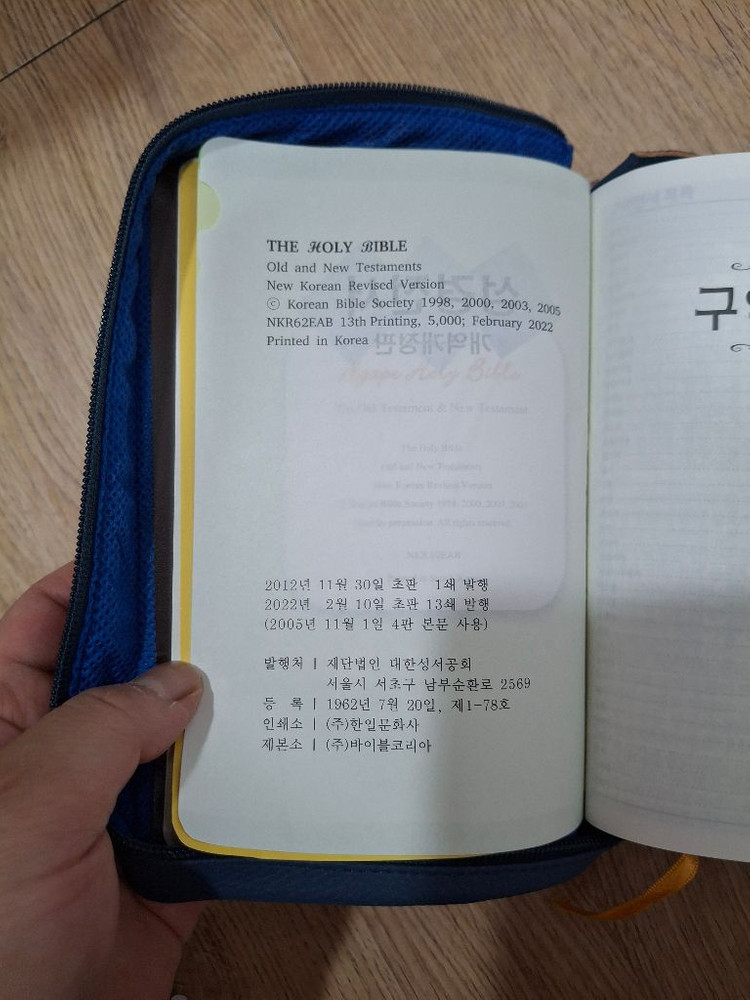 THE HOLY BIBLE
Old and New Testaments
New Korean Revised Version
ⓒ Korean Bible Society 1998, 2000, 2003, 2005
NKR62EAB 13th Printing, 5,000; February 2022
Printed in Korea
2012년 11월 30일 초판 1쇄 발행
2022년 2월 10일 초판 13쇄 발행
(2005년 11월 1일 4판 본문 사용)
발행처 | 재단법인 대한성서공회
서울시 서초구 남부순환로 2569
등 록 | 1962년 7월 20일, 제1-78호
인쇄소 | (주)한일문화사
제본소 | (주)바이블코리아
구